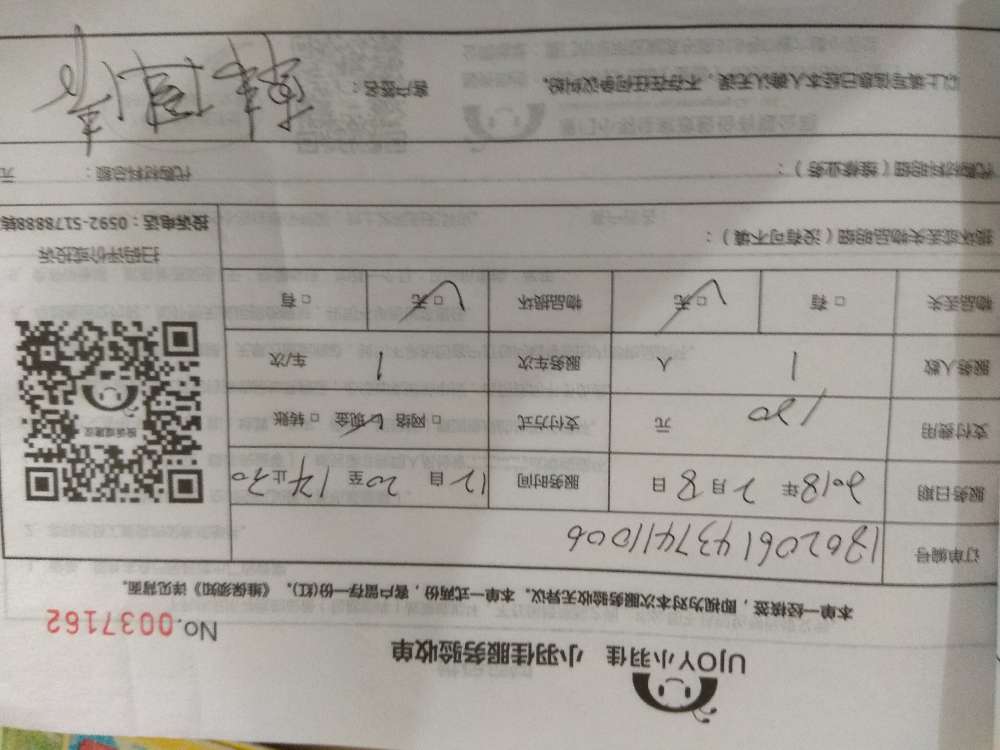 UJOY小羽佳 小羽佳服务验收单
No.0037162
本单一经核签，即视为对本次服务验收无异议。本单一式两份，客户留存一份(红)。《维保须知》详见背面。
订单编号
服务日期 2018年 2月8日 服务时间 12自 20至 14止20
支付费用 120 元 支付方式 □网络 ☑现金 □转账
服务人数 1 人 服务车次 1 车/次
物品丢失 □有 □无 物品损坏 □无 □有
损坏或丢失物品明细（没有可不填）：
投诉或建议
扫码评价或投诉
投诉电话：0592-5178888转
代购材料明细（维修业务）： 代购材料总额： 元
以上填写信息已经本人确认无误，不存在任何争议纠纷。 客户签名：